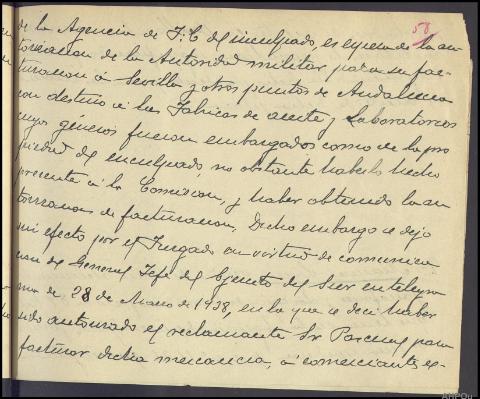 58
de la Agencia de F.C. del inculpado, es espera de la au
torización de la Autoridad militar para su fac-
turacion á Sevilla y otros puntos de Andalucia
con destino á las Fabricas de aceite y Laboratorios
cuyos géneros fueron embargados como de la pro
piedad del inculpado, no obstante haberlo hecho
presente á la Comision, y haber obtenido la au
torizacion de facturacion, Dicho embargo se dejó
sin efecto por el Juzgado en virtud de comunica
cion del General Jefe del Ejercito del Sur en telegra
ma de 28 de Marzo de 1938, en la que se decia haber
sido autorizado el reclamante Sr para
facturar dicha mercancia, á comerciantes ex-